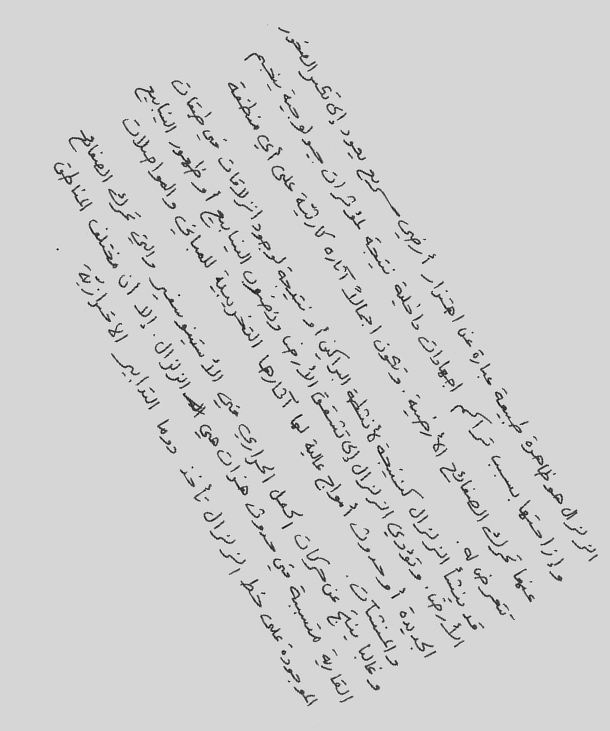 الزلزال هو ظاهرة طبيعة عبارة عن اهتزاز أرضي سريع يعود إلى تكسر الصخور
وإزاحتها بسبب تراكم اجهادات داخلية نتيجة لمؤثرات جيولوجية ينجم
عنها تحرك الصفائح الأرضية. وتكون اجمالاً آثاره كارثية على أي منطقة
تتعرض له.
قد ينشأ الزلزال كنتيجة لأنشطة البراكين أو نتيجة لوجود انزلاقات في طبقات
الأرض. وتؤدي الزلزال إلى تشقق الأرض ونضوب الينابيع أو ظهور الينابيع
الجديدة أو حدوث أمواج عالية لها آثارها التخريبية للمباني والمواصلات
والمنشآت.
وغالبا ينتج عن حركات الحمل الحراري في الأستينوسفير والتي تحرك الصفائح
القارية متسببة في حدوث هزات هي الزلزال. إلا أن مختلف المناطق
الموجودة على خط الزلزال تأخذ دوما التدابير الاحترازية